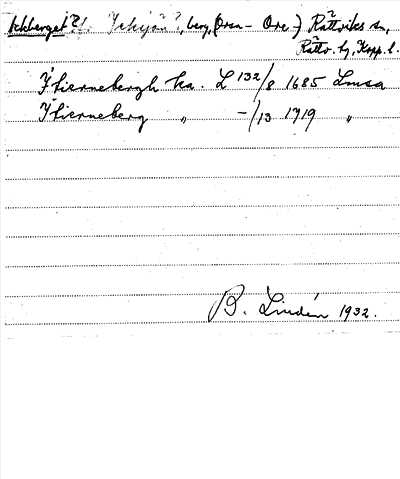 Ickberget?! Icksjön?, berg, (Orsa - Ore) Rättviks sn,
Rättv. tg, Kopp. l.
Itiernebergh ka. L 132/8 1685 Lmsa
Itierneberg " -/13 1719 "
B. Lindén 1932.